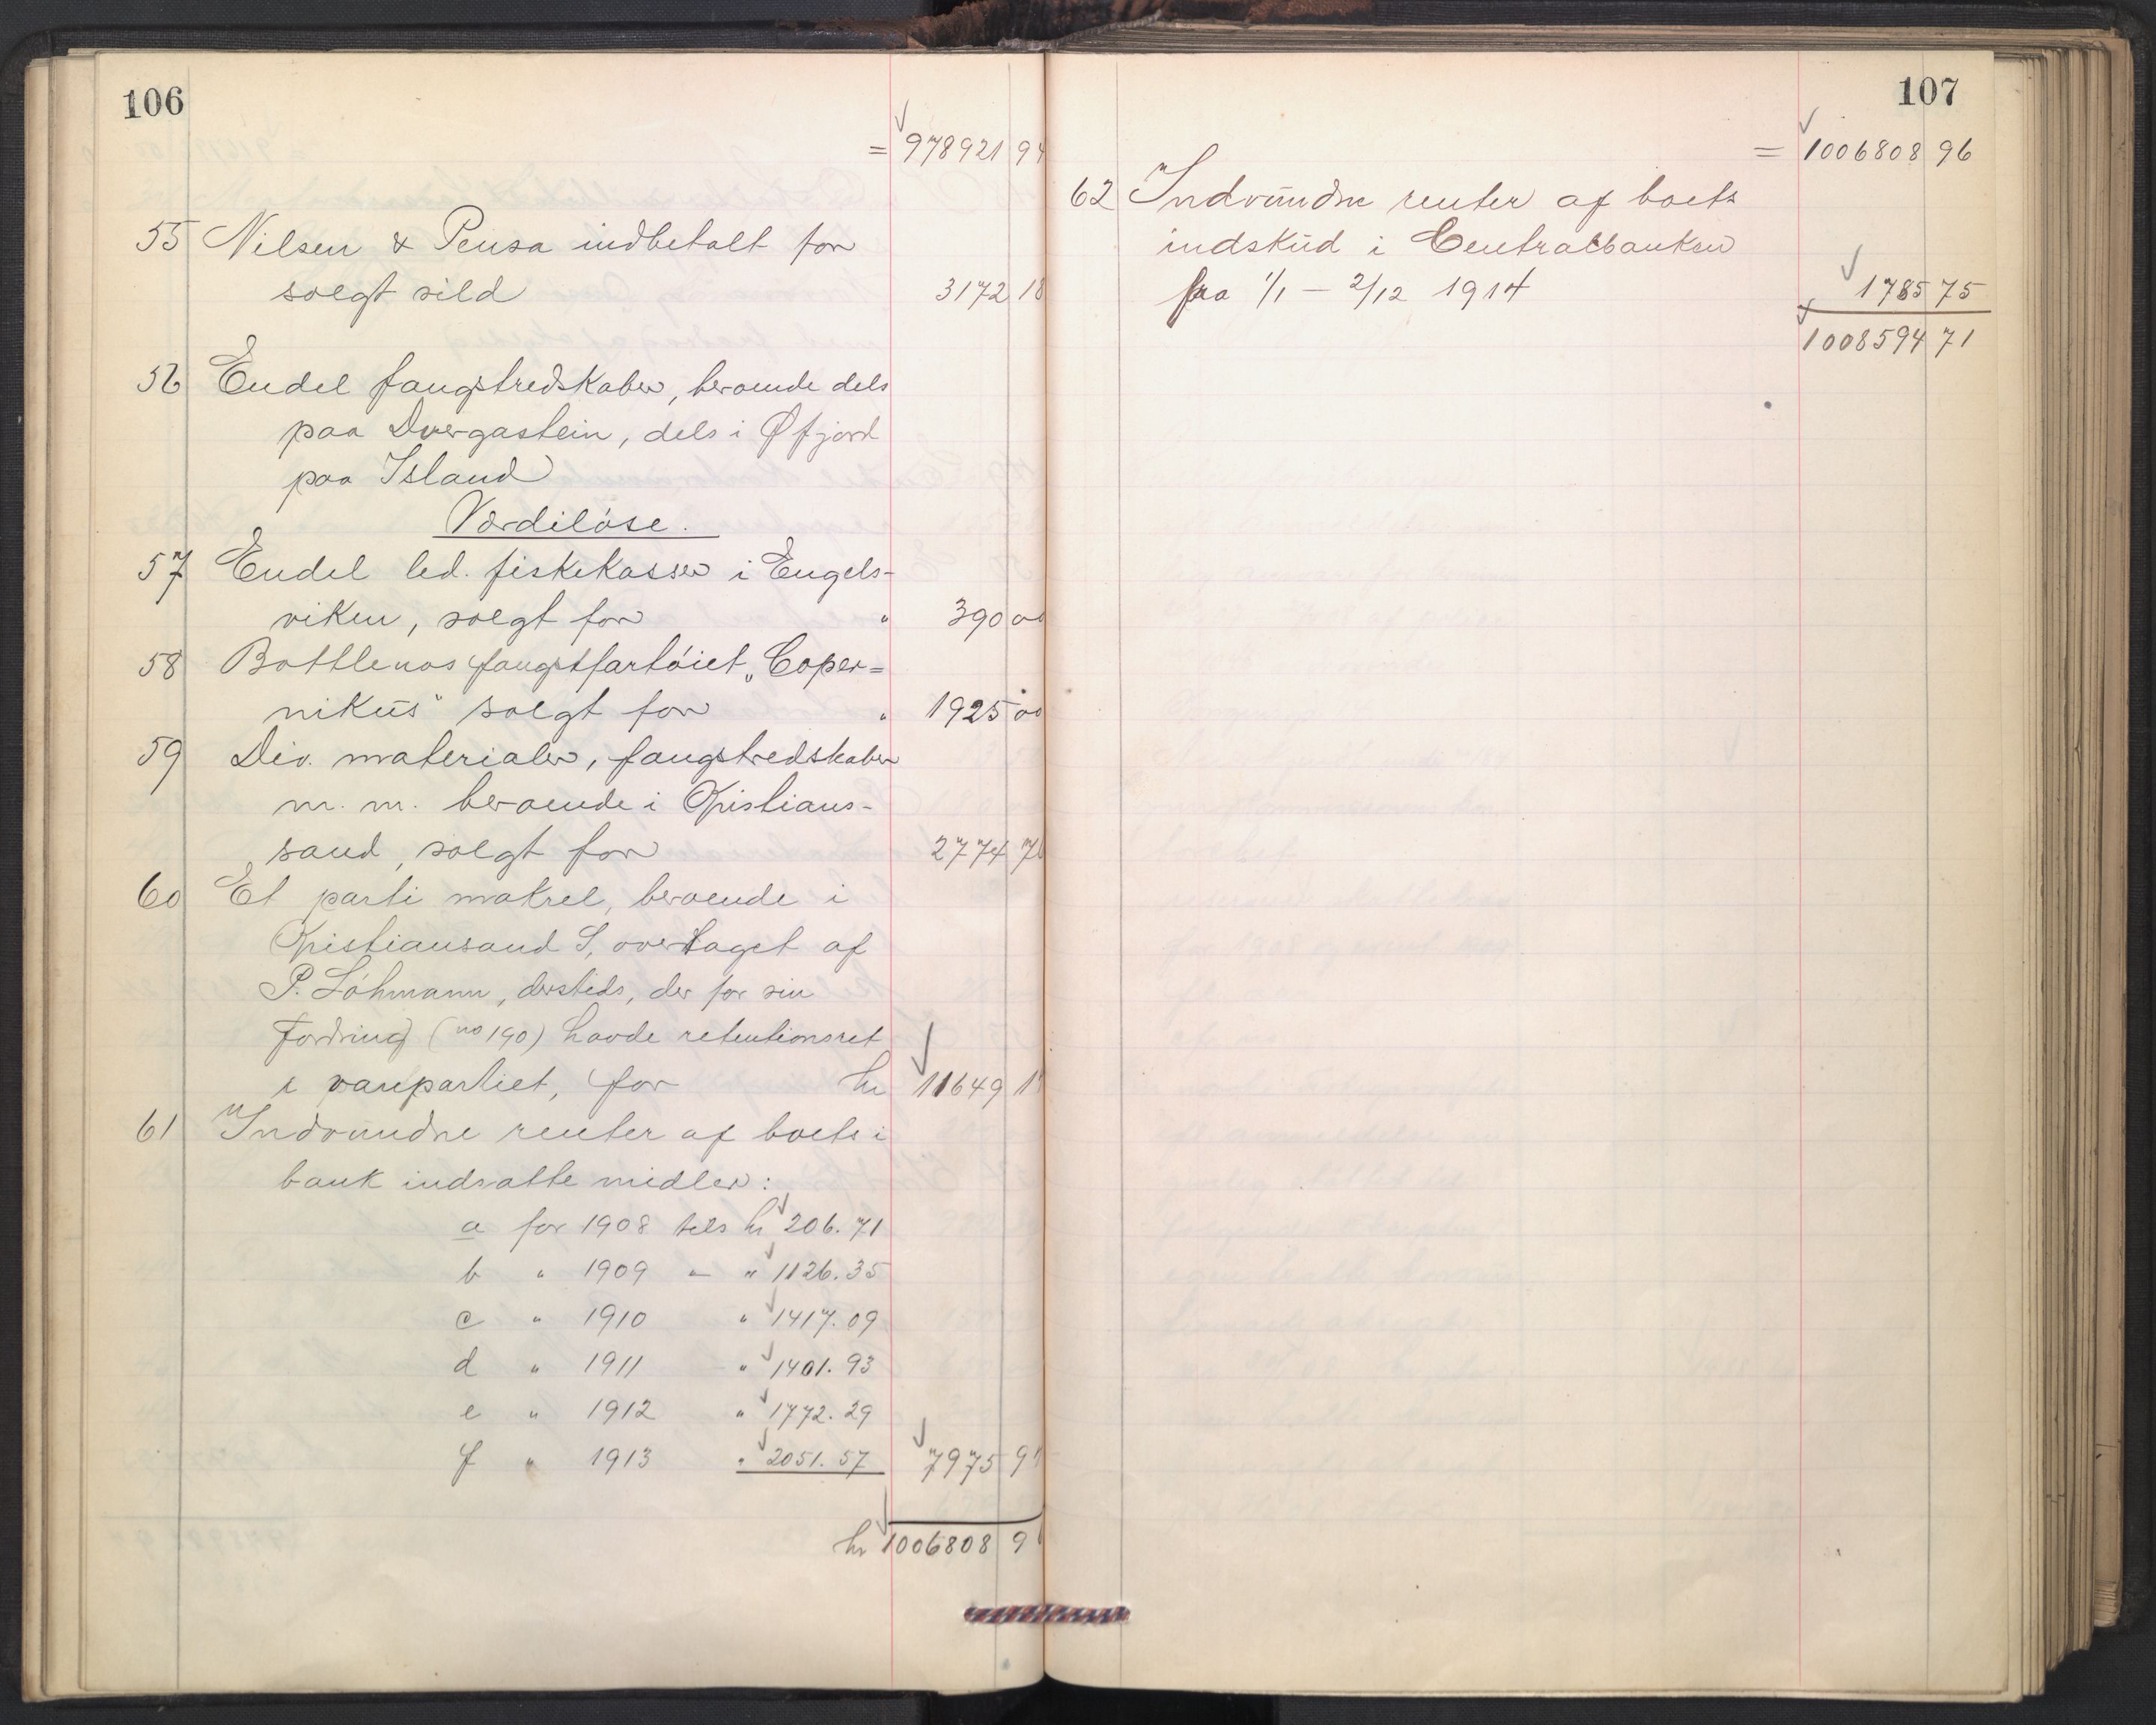 106
= 978921 94
55 Nilsen & Pensa indbetalt for
solgt sild 3172 18
56 Endel fangstredskaber, beroende dels
paa Dvergastein, dels i Øfjord
paa Island
Værdiløse.
57 Endel led. fiskekasser i Engels-
viken, solgt for " 390 00
58 Bottlenosfangstfartøiet „Coper=
nikus" solgt for " 1925 00
59 Div. materialer, fangstredskaber
m. m. beroende i Kristians-
sand, solgt for 2774 7
60 Et parti makrel, beroende i
Kristiansand S, overtaget af
P. Løhmann, dersteds, der for sin
fordring (no 190) havde retentionsret
i varepartiet, for kr 11649 1
61 Indvundne renter af boets i
bank indsatte midler:
a for 1908 tels kr 206.71
b " 1909 - " 1126.35
c " 1910 " 1417.09
d " 1911 " 1401.93
e " 1912 " 1772.29
f " 1913 " 2051.57 7975 9
kr 1006808 9
107
= 1006808 96
62 Indvundne renter af boets
indskud i Centralbanken
fra 1/1 - 2/12 1914 1785 75
1008594 71